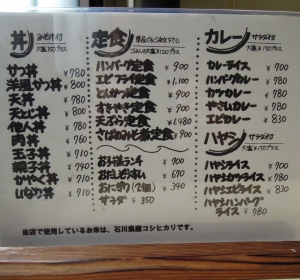 丼 みそ汁付
大盛¥150プラス
かつ丼 ¥780
洋風かつ丼 ¥800
天丼 ¥780
天とじ丼 ¥780
他人丼 ¥780
肉丼 ¥760
玉子丼 ¥710
親子丼 ¥740
かやく丼 ¥710
いなり丼 ¥710
定食
ごはんの大盛¥120プラス
ハンバーグ定食 ¥900
エビフライ定食 ¥1,100
とんかつ定食 ¥900
すきやき定食 ¥900
天ぷら定食 ¥1,480
さばのみそ煮定食 ¥900
お子様ランチ ¥700
おぞうすい ¥690
おにぎり(2個) ¥340
サラダ ¥350
カレー サラダ付
大盛¥150プラス
カレーライス ¥700
ハンバーグカレー ¥780
カツカレー ¥780
やさいカレー ¥780
エビカレー ¥830
ハヤシ サラダ付
大盛¥150プラス
ハヤシライス ¥700
ハヤシカツライス ¥780
ハヤシエビライス ¥830
ハヤシハンバーグ
ライス ¥780
当店で使用しているお米は、石川県産コシヒカリです。